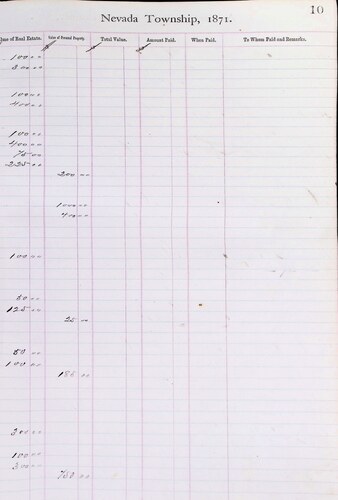 10
Nevada Township, 1871.
Value of Real Estate. Value of Personal Property. Total Value. Amount Paid. When Paid. To Whom Paid and Remarks.
100 00
200 00
100 00
400 00
100 00
400 00
75 00
225 00
200 00
1000 00
400 00
100 00
50 00
125 00
25 00
50 00
100 00
185 00
300 00
100 00
300 00
750 00